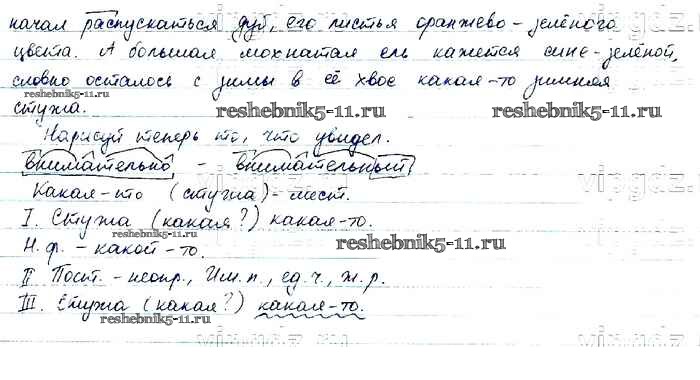 начал распускаться дуб, его листья оранжево-зелёного
цвета. А большая мохнатая ель кажется сине-зелёной,
словно осталось с зимы в её хвое какая-то зимняя
стужа.
reshebnik5-11.ru
reshebnik5-11.ru
Нарисуй теперь то, что увидел.
внимательно - внимательный.
Какая-то (стужа) - мест.
vipgdz.ru
I. Стужа (какая?) какая-то.
reshebnik5-11.ru
Н.ф. - какой-то.
reshebnik5-11.ru
II Пост. - неопр., Им.п., ед.ч., ж.р.
III. Стужа (какая?) какая-то.
reshebnik5-11.ru